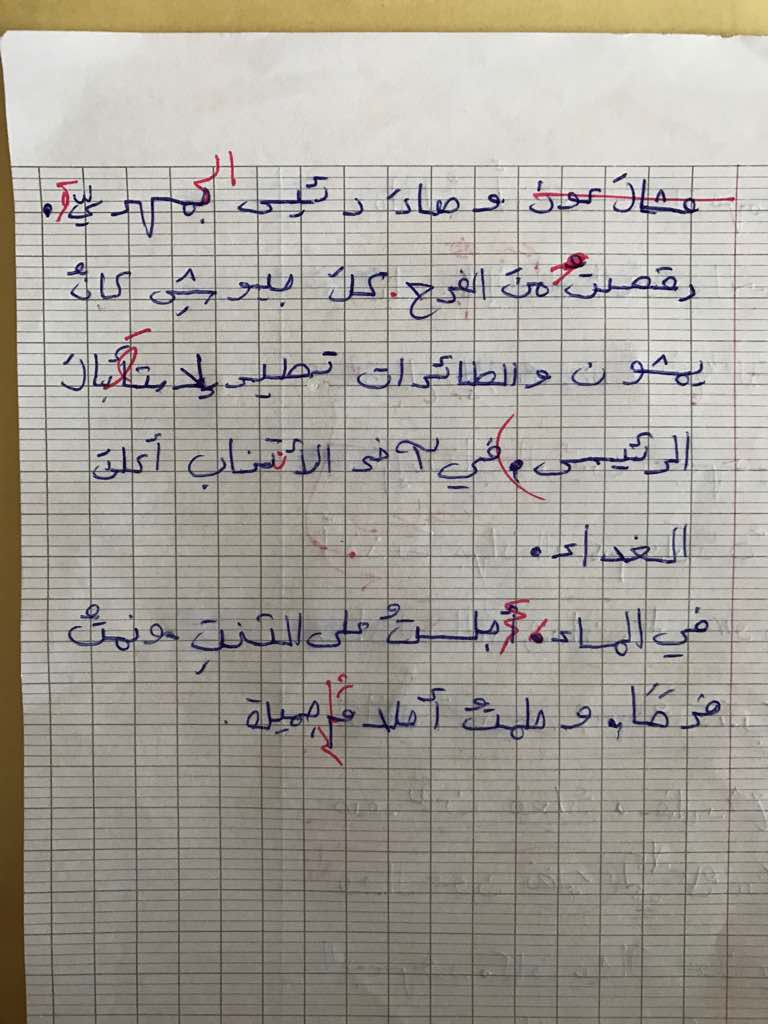 مشال عون وصار رئيس الجمهوريّة.
رقصتُ من الفرح. كلّ جيوش كانُ
يمشون والطائرات تطير لإستأبال
الرئيس. في آخر الأتخاب أكلت
الغداء.
في الماء. أجلستُ على التختِ ونمتُ
فرحًا، وحلمتُ أحلا جميلة.